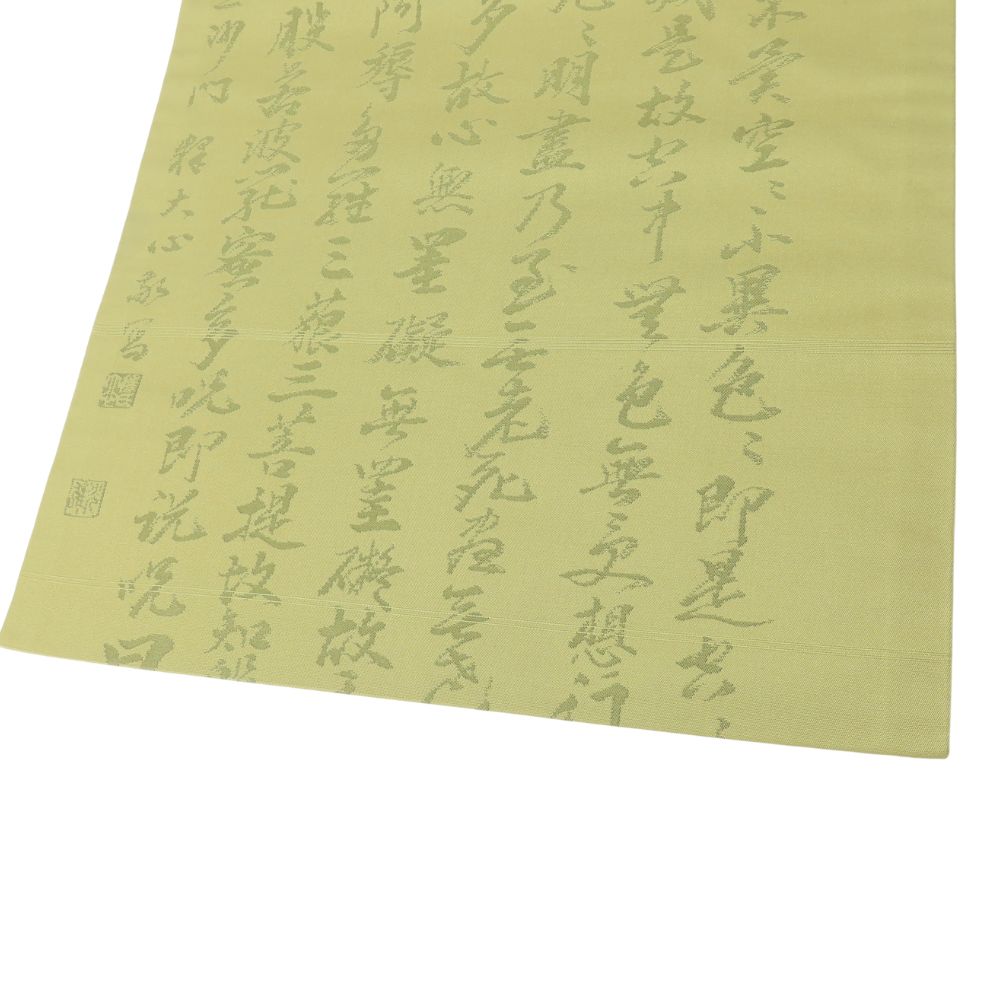 不異空〻不異色〻即是空〻
減是故空中無色無受想行
无〻明盡乃至无老死盡無
多故心無罣礙無罣礙故
阿耨多羅三藐三菩提故知般
般若波羅蜜多呪即説呪曰
沙門 釋大心敬寫